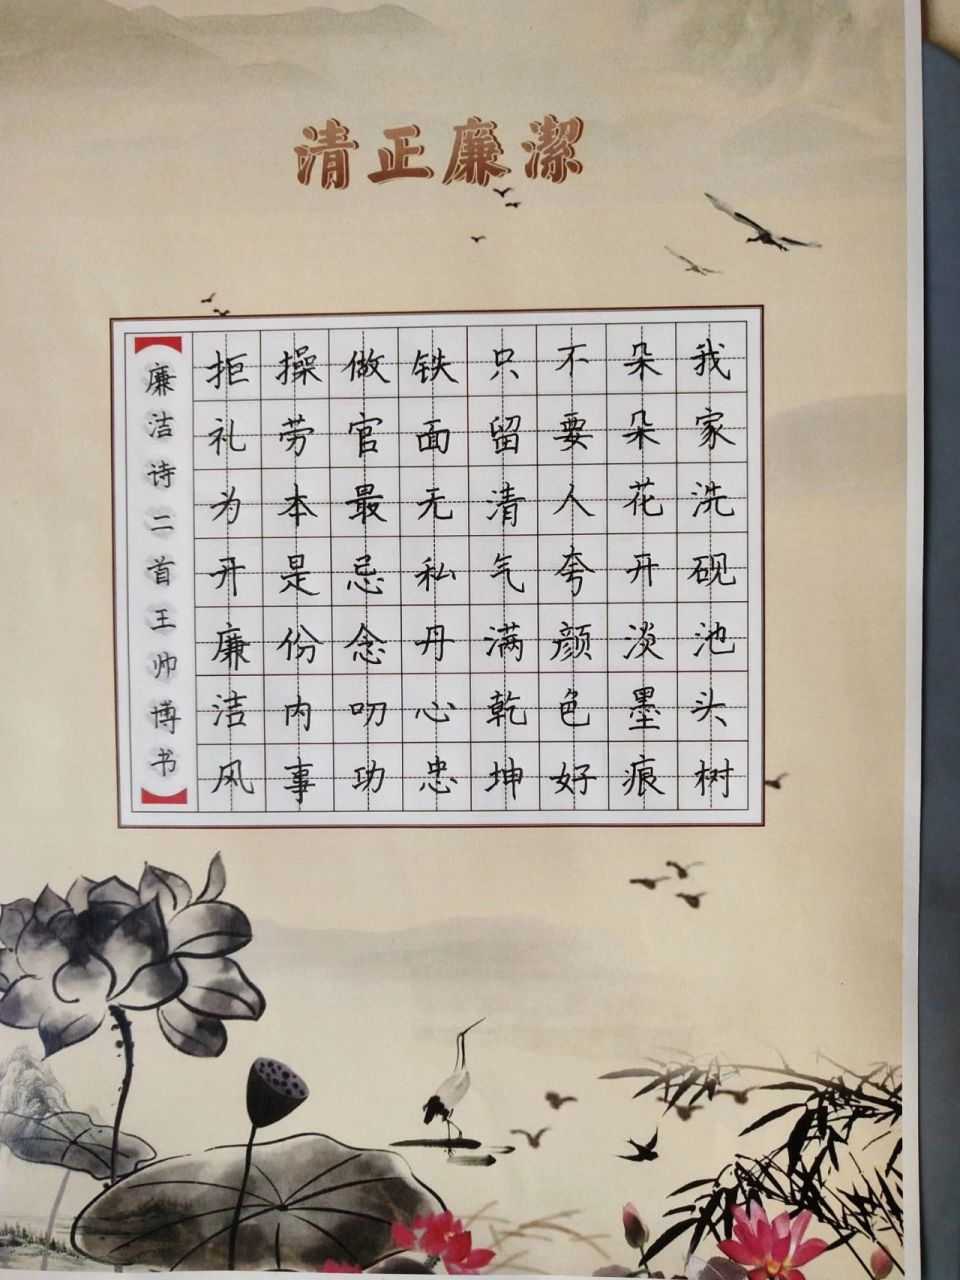 清正廉潔
我家洗砚池头树
朵朵花开淡墨痕
不要人夸颜色好
只留清气满乾坤
铁面无私丹心忠
做官最忌念叨功
操劳本是份内事
拒礼为开廉洁风
廉洁诗二首王帅博书